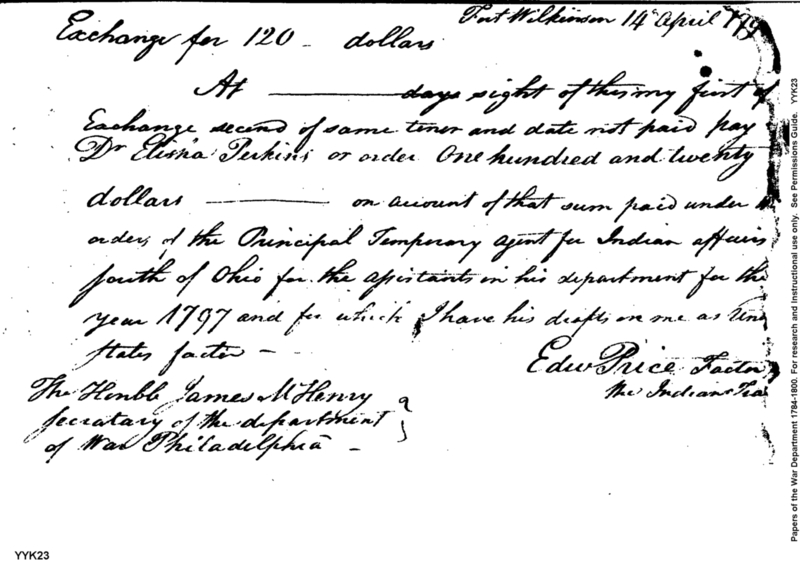 Fort Wilkinson 14 April 179
Exchange for 120 - dollars
At ——— days sight of this my first of
Exchange second of same tenor and date not paid pay
Dr Elisha Perkins or order One hundred and twenty
dollars ——— on account of that sum paid under
orders of the Principal Temporary agent for Indian affairs
south of Ohio for the assistants in his department for the
year 1797 and for which I have his drafts on me as
states factor -
Edwd Price Factor
the Indian
The Honble James McHenry
Secretary of the department
of War Philadelphia -
YYK23
Papers of the War Department 1784-1800. For research and instructional use only. See Permissions Guide. YYK23